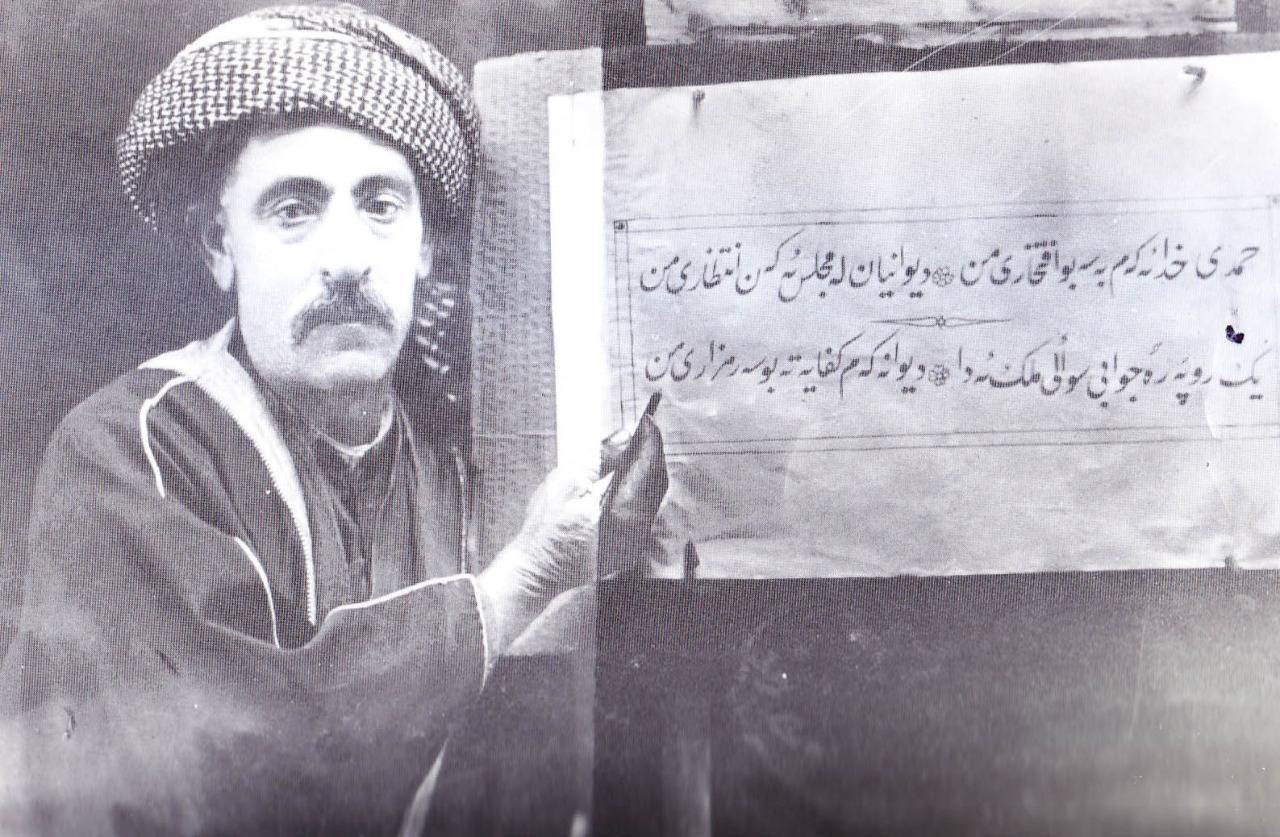 حمدی خدا ئه که م به سه بو افتخاری من ❁ دیوانیان له مجلس ئه که ن انتظاری من
یک رو په ره جوابی سوالی ملک ئه دا ❁ دیوانه که م کفایه ته بو سه ر مزاری من